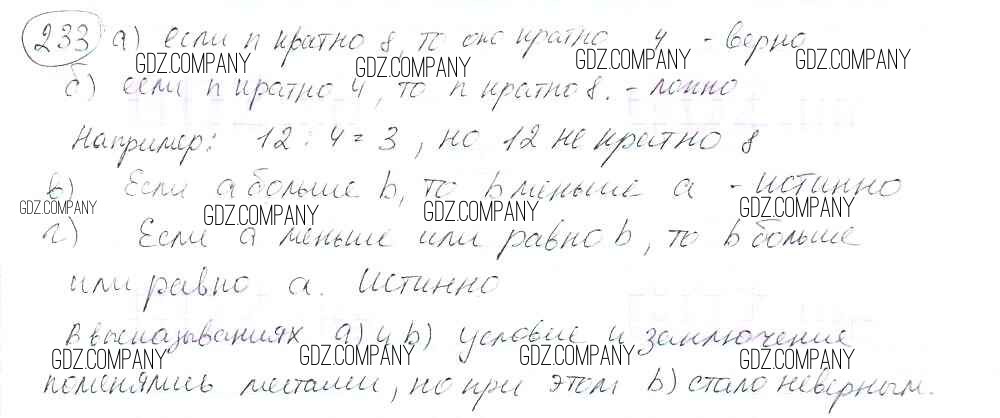 233 а) если n кратно 8, то оно кратно 4 - верно
GDZ.COMPANY GDZ.COMPANY GDZ.COMPANY GDZ.COMPANY
б) если n кратно 4, то n кратно 8. - ложно
Например: 12 : 4 = 3, но 12 не кратно 8
в) Если a больше b, то b меньше a - истинно
GDZ.COMPANY GDZ.COMPANY GDZ.COMPANY GDZ.COMPANY
г) Если a меньше или равно b, то b больше
или равно a. Истинно
В высказываниях а) и b) условие и заключение
GDZ.COMPANY GDZ.COMPANY GDZ.COMPANY GDZ.COMPANY
поменялись местами, но при этом b) стало неверным.